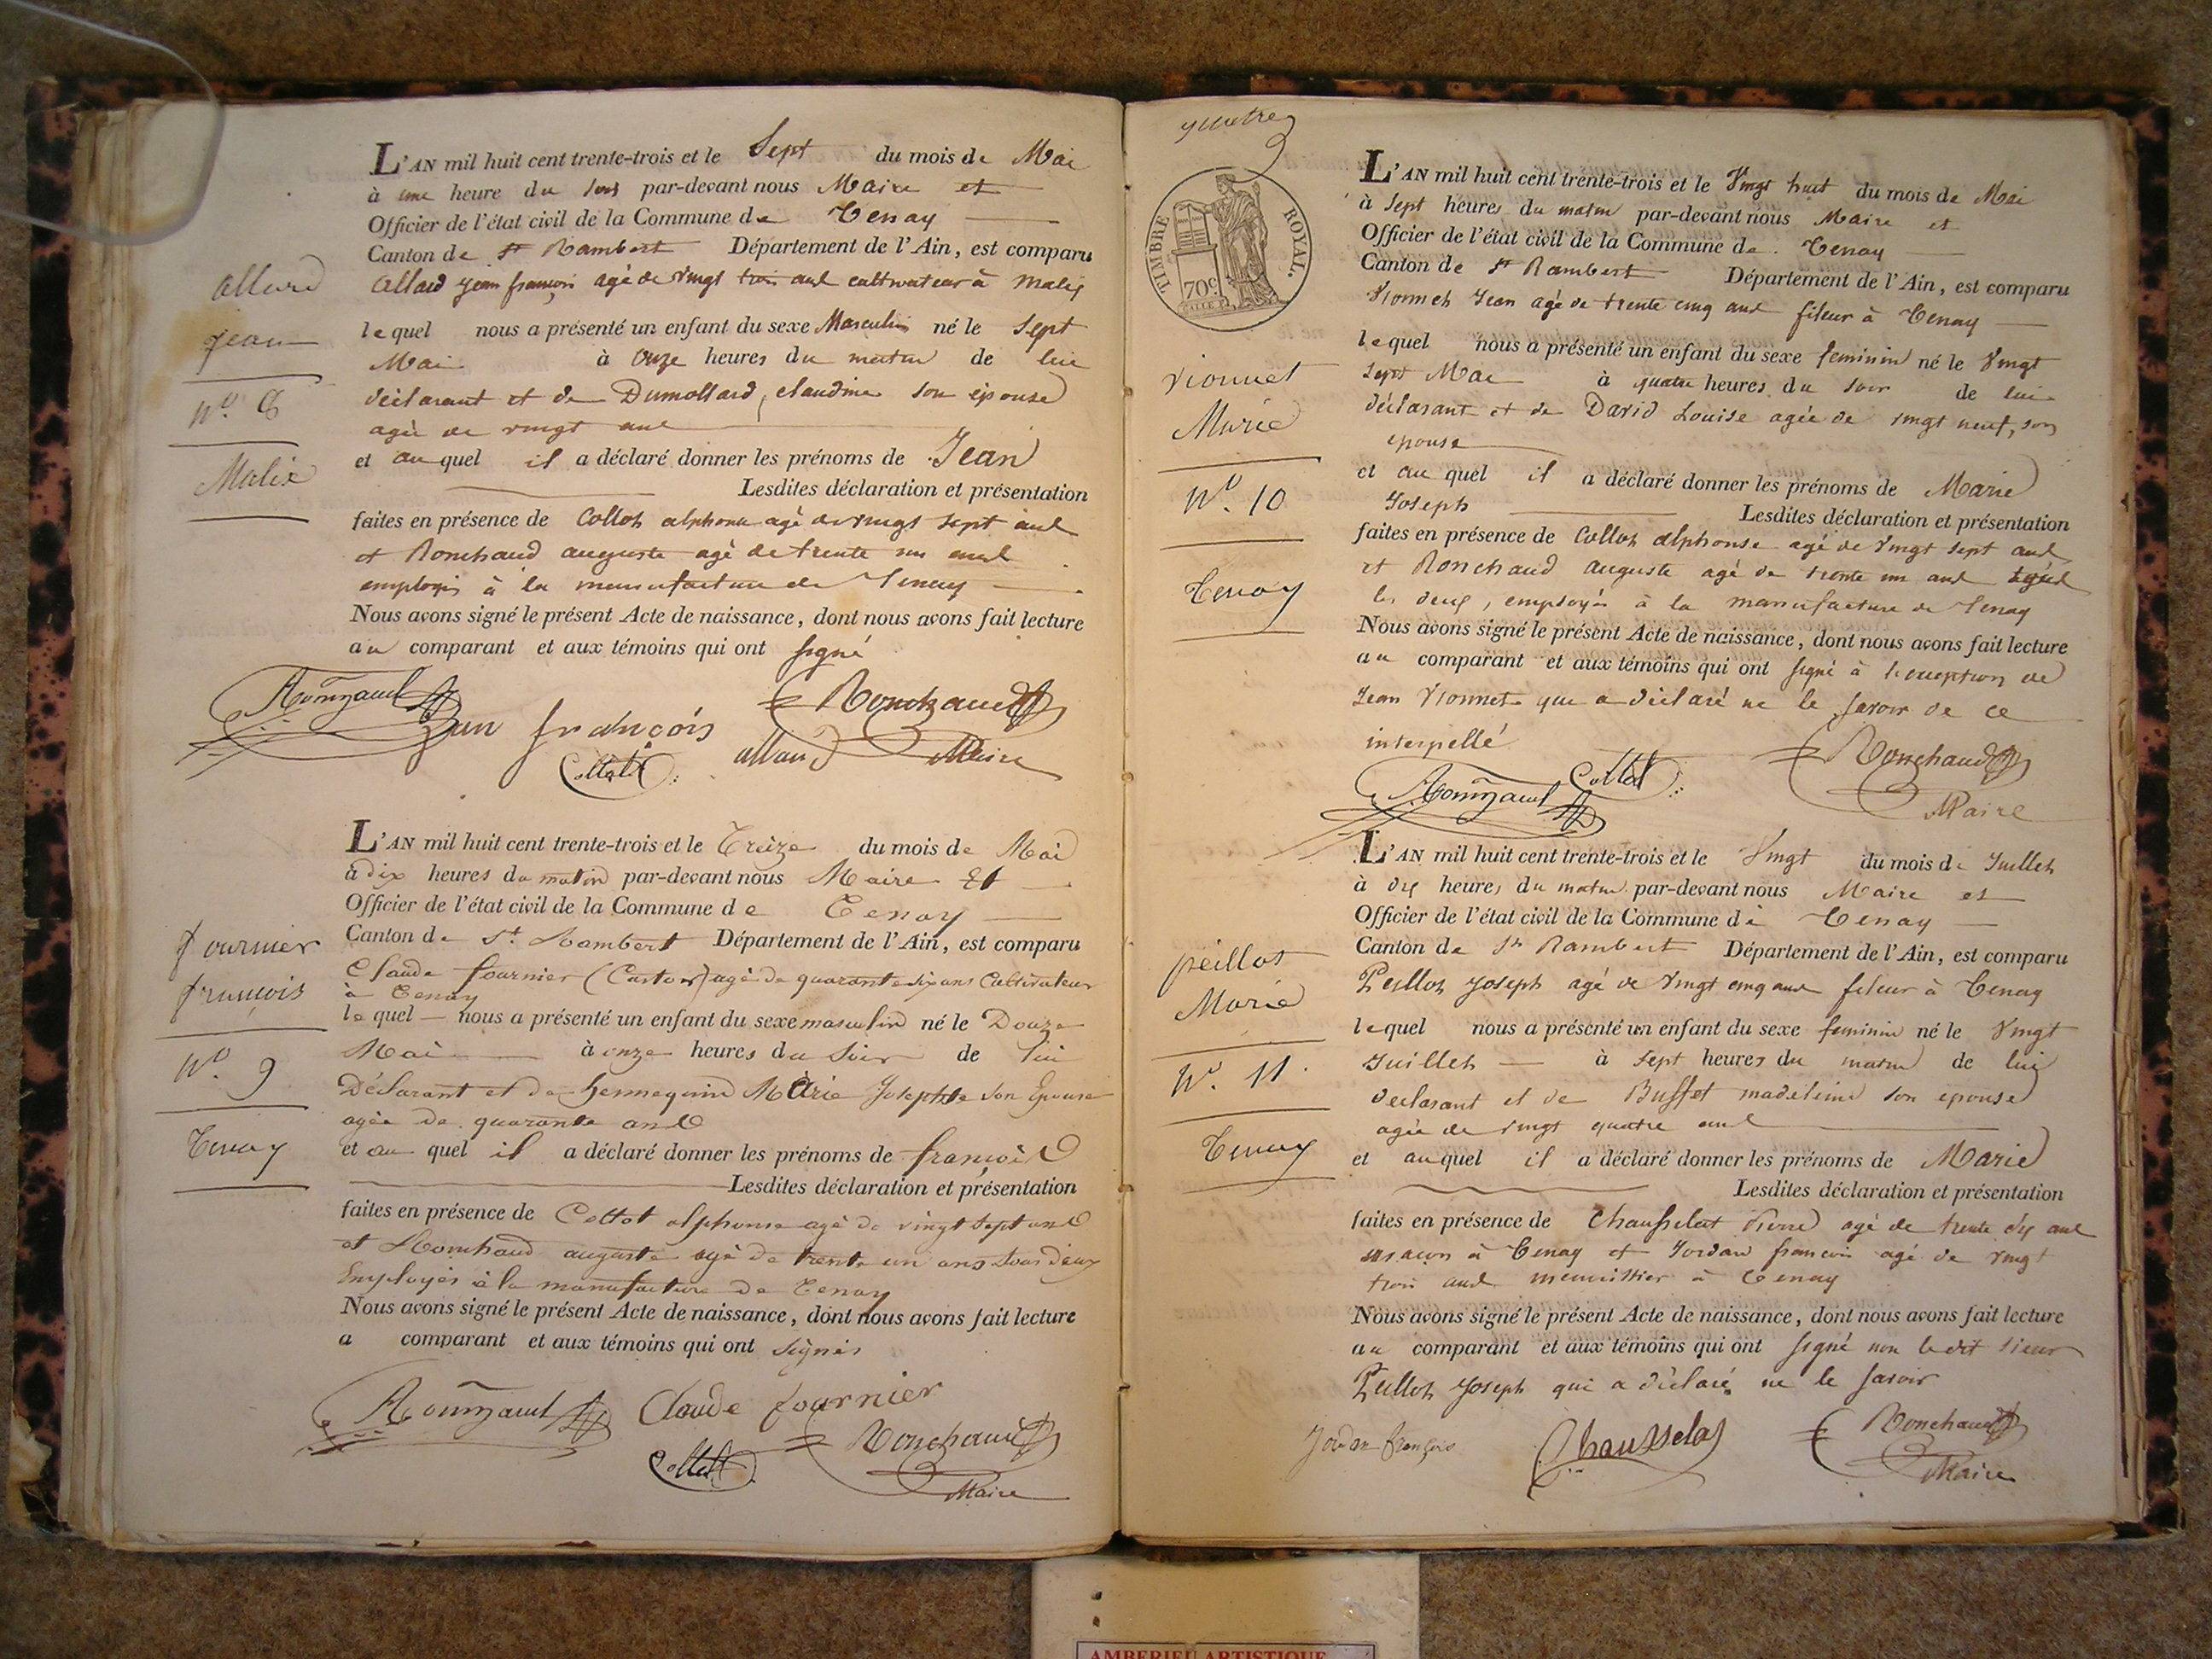 Allard
Jean
N.º 8
Malix
L'AN mil huit cent trente-trois et le Sept du mois de Mai
à une heure du soir par-devant nous Maire et
Officier de l'état civil de la Commune de Tenay
Canton de St Rambert Département de l'Ain, est comparu
Allard Jean françois agé de vingt trois ans cultivateur à Malix
lequel nous a présenté un enfant du sexe Masculin né le sept
Mai à onze heures du matin de lui
déclarant et de Dumollard, claudine son épouse
agée de vingt ans
et au quel il a déclaré donner les prénoms de Jean
Lesdites déclaration et présentation
faites en présence de Collot alphonse agé de vingt sept ans
et Ronchaud auguste agé de trente un ans
employés à la manufacture de Tenay
Nous avons signé le présent Acte de naissance, dont nous avons fait lecture
au comparant et aux témoins qui ont signé
Jean françois Ronchaud
Collot allard Maire
fournier
françois
N.º 9
Tenay
L'AN mil huit cent trente-trois et le Treize du mois de Mai
à dix heures du matin par-devant nous Maire Et
Officier de l'état civil de la Commune de Tenay
Canton de St. Rambert Département de l'Ain, est comparu
Claude fournier (Castor) agé de quarante six ans Cultivateur
à Tenay
le quel nous a présenté un enfant du sexe masculin né le Douze
Mai à onze heures du Soir de lui
Déclarant et de hennequin Marie Josephte son Epouse
agée de quarante ans
et au quel il a déclaré donner les prénoms de françois
Lesdites déclaration et présentation
faites en présence de Collot alphonse agé de vingt sept ans
et Ronchaud auguste agé de trente un ans tous deux
Employés à la manufacture de Tenay
Nous avons signé le présent Acte de naissance, dont nous avons fait lecture
a comparant et aux témoins qui ont signés
Claude fournier
Collot Ronchaud
Maire
quatre
TIMBRE ROYAL.
70c
vionnet
Marie
N.º 10
Tenay
L'AN mil huit cent trente-trois et le Vingt huit du mois de Mai
à Sept heures du matin par-devant nous Maire et
Officier de l'état civil de la Commune de Tenay
Canton de St Rambert Département de l'Ain, est comparu
Vionnet Jean agé de trente cinq ans fileur à Tenay
lequel nous a présenté un enfant du sexe feminin né le Vingt
Sept Mai à quatre heures du soir de lui
déclarant et de David Louise agée de vingt neuf, son
epouse
et au quel il a déclaré donner les prénoms de Marie
Joseph Lesdites déclaration et présentation
faites en présence de Collot alphonse agé de vingt sept ans
et Ronchaud auguste agé de trente un ans
les deux, employés à la manufacture de Tenay
Nous avons signé le présent Acte de naissance, dont nous avons fait lecture
au comparant et aux témoins qui ont signé à l'exception de
Jean Vionnet que a déclaré ne le savoir de ce
interpellé
Collot Ronchaud
Maire
peillot
Marie
N.º 11
Tenay
L'AN mil huit cent trente-trois et le Vingt du mois de Juillet
à dix heures du matin par-devant nous Maire et
Officier de l'état civil de la Commune de Tenay
Canton de St Rambert Département de l'Ain, est comparu
Peillot Joseph agé de Vingt cinq ans fileur à Tenay
lequel nous a présenté un enfant du sexe feminin né le Vingt
Juillet à sept heures du matin de lui
declarant et de Buffet madeleine son epouse
agée de vingt quatre ans
et auquel il a déclaré donner les prénoms de Marie
Lesdites déclaration et présentation
faites en présence de Chausselat Pierre agé de trente dix ans
maçon à Tenay et Jordan françois agé de vingt
trois ans menuisier à Tenay
Nous avons signé le présent Acte de naissance, dont nous avons fait lecture
au comparant et aux témoins qui ont signé non ledit sieur
Peillot Joseph qui a déclaré ne le savoir
Jordan françois Chausselat Ronchaud
Maire
AMBERIEU ARTISTIQUE